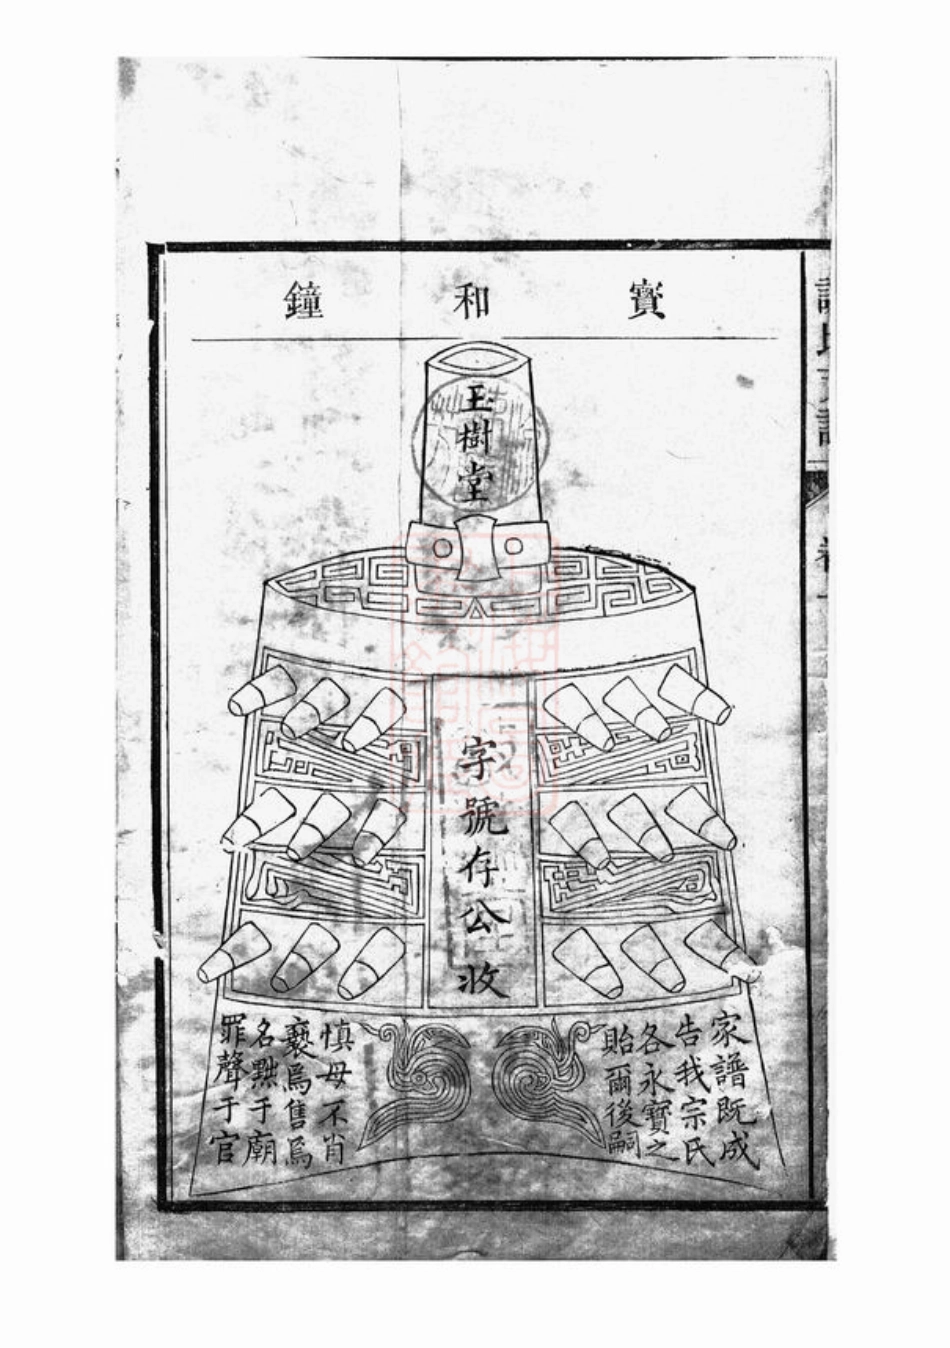 寳和鐘
玉樹堂
字號存公收
家譜既成
告我宗氏
各永寳之
貽爾後嗣
慎毋不肖
褻焉售焉
名黜于廟
罪聲于官